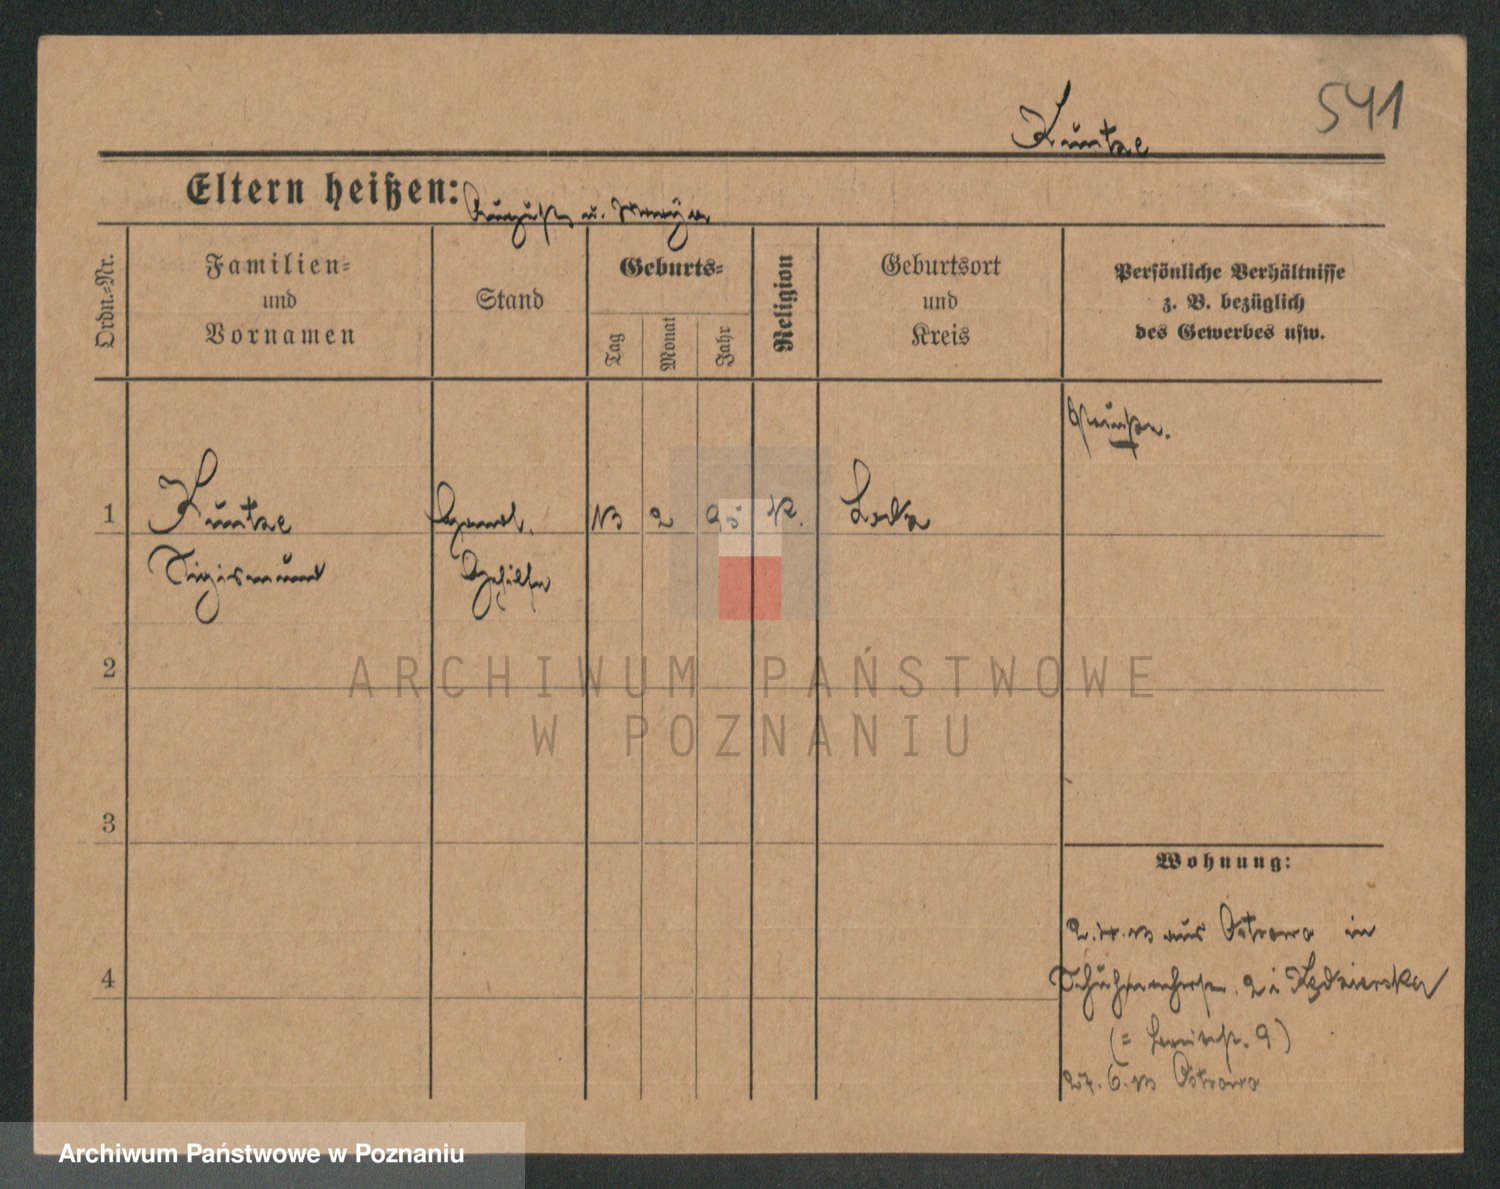 541
Kuntze
Eltern heißen: August u.
Ordn.-Nr.
Familien-
und
Vornamen
Stand
Geburts-
Tag
Monat
Jahr
Religion
Geburtsort
und
Kreis
Persönliche Verhältnisse
z. B. bezüglich
des Gewerbes usw.
Preuße.
1
Kuntze
Handl.
13
2
95
K.
Lodz
Sigismund
Gehilfe
2
ARCHIWUM PAŃSTWOWE
W POZNANIU
3
Wohnung:
4
aus Ostrowo in
2
(= Breitestr. 9)
27. 6. 13 Ostrowo
Archiwum Państwowe w Poznaniu